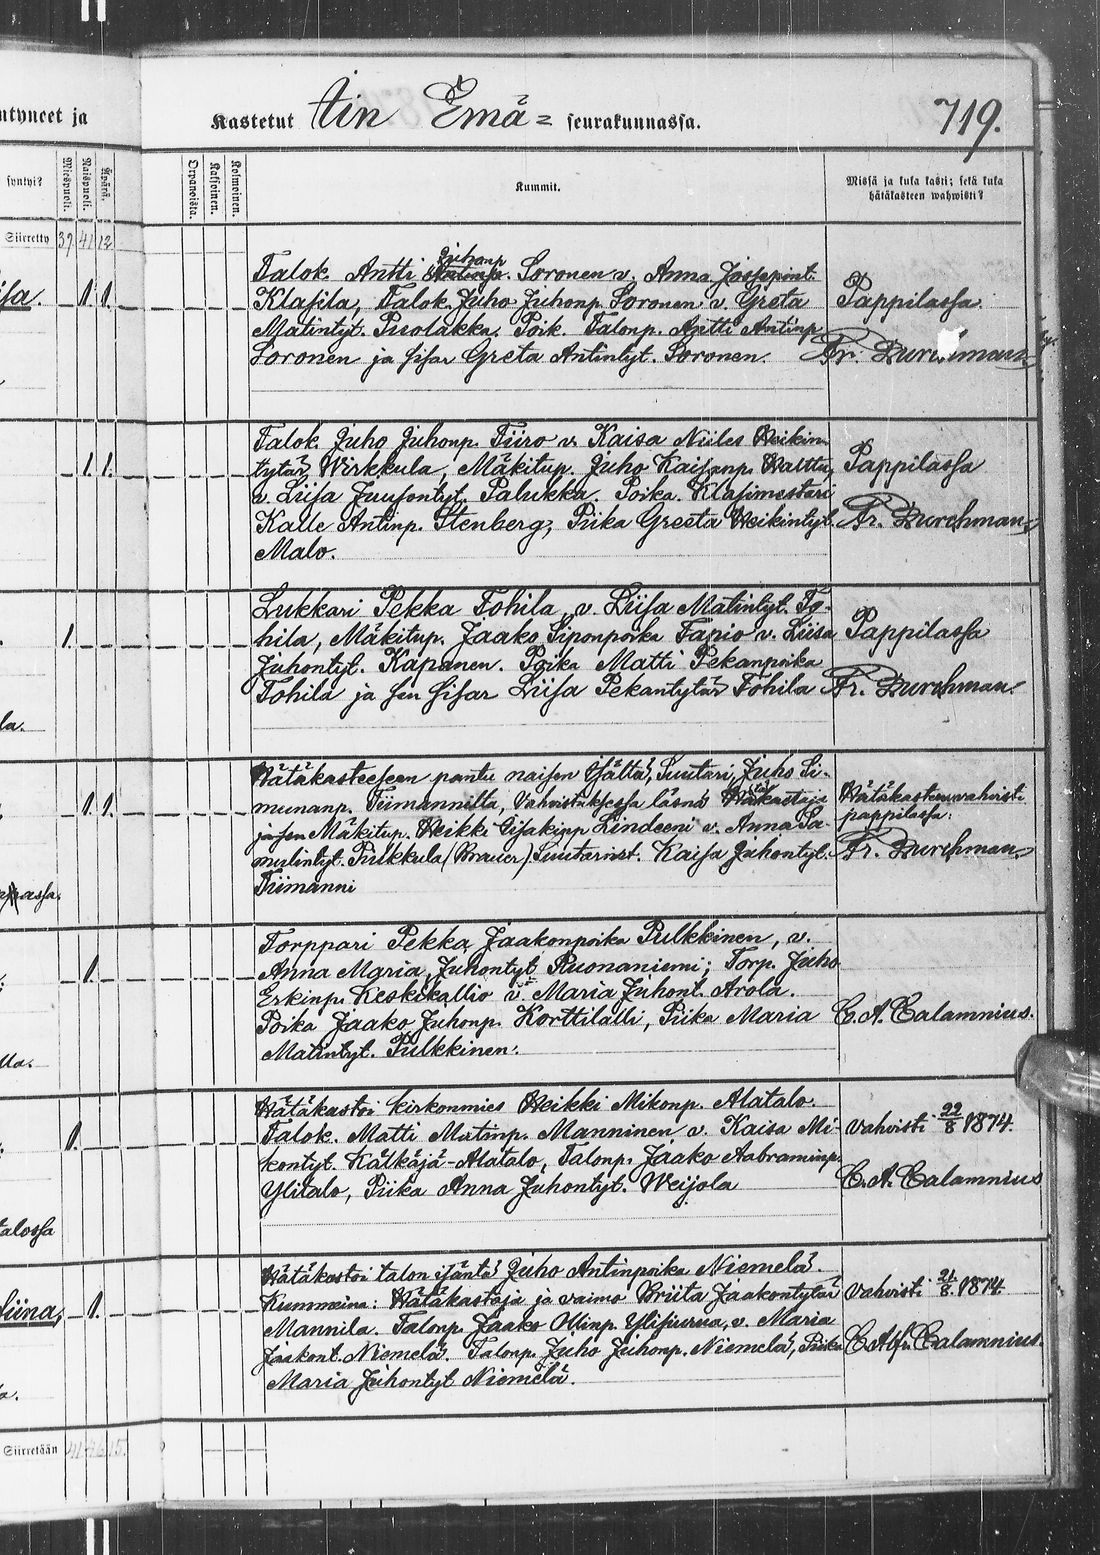 ntyneet ja
Kastetut Iin Emä= seurakunnassa.
719.
syntyi?
Miespuoli.
Naispuoli.
Äpärä.
Orpanoista.
Kaksoinen.
Kolmoinen.
Kummit.
Missä ja kuka kasti; sekä kuka
hätäkasteen wahwisti?
Siirretty 39 41 12
isa. 1. 1.
Talok. Antti Juhonp. Soronen v. Anna Josefint.
Klasila, Talok. Juho Juhonp. Soronen v. Greta
Matintyt. Puolakka. Poik. Talonp. Antti Antinp
Soronen ja sisar Greta Antintyt. Soronen.
Pappilassa
Fr. Durchman
1. 1.
Talok. Juho Juhonp. Tiiro v. Kaisa Niiles Heikin-
tytär Wirkkula, Mäkitup. Juho Kaisanp. Walttu
v. Liisa Juusontyt. Palukka. Poika Klasimestari
Kalle Antinp. Stenberg, Piika Greeta Heikintyt.
Malo.
Pappilassa
Fr. Durchman
1.
Lukkari Pekka Tohila, v. Liisa Matintyt. To-
hila, Mäkitup. Jaako Siponpoika Tapio v. Liisa
Juhontyt. Kapanen. Poika Matti Pekanpoika
Tohila ja sen sisar Liisa Pekantytär Tohila
Pappilassa
Fr. Durchman
la.
1. 1.
Hätäkasteeseen pantu naisen isältä, Suutari, Juho Si-
meunanp. Tiimannilta, Vahvistuksessa läsnä Hätäkastaja
ja sen Mäkitup. Heikki Eisakinp Lindeeni v. Anna Sa-
mulintyt. Pulkkula (Brauer) Suutarint. Kaisa Juhontyt.
Tiimanni
Hätäkasteen vahvisti
pappilassa:
Fr. Durchman
assa.
1.
Torppari Pekka Jaakonpoika Pulkkinen, v.
Anna Maria Juhontyt Ruonaniemi; Torp. Juho
Erkinp. Keskikallio v. Maria Juhont. Arola.
Poika Jaako Juhonp. Korttilalli, Piika Maria
Matintyt. Pulkkinen.
C. A. Calamnius.
lla.
1.
Hätäkastoi kirkonmies Heikki Mikonp. Alatalo.
Talok. Matti Matinp. Manninen v. Kaisa Mi-
kontyt. Kälkäjä-Alatalo, Talonp. Jaako Aabraminp.
Ylitalo, Piika Anna Juhontyt. Weijola
vahvisti 22/8 1874.
C. A. Calamnius
talossa
1.
Hätäkastoi talon isäntä Juho Antinpoika Niemelä.
Kummeina: Hätäkastaja ja vaimo Briita Jaakontytär
Mannila. Talonp. Jaako Ollinp. Ylisuurua, v. Maria
Jaakont. Niemelä. Talonp. Juho Juhonp. Niemelä, Piika
Maria Juhontyt Niemelä.
vahvisti 21/8 1874.
C. A. Calamnius.
Siina,
Siirretään 41 46 15.